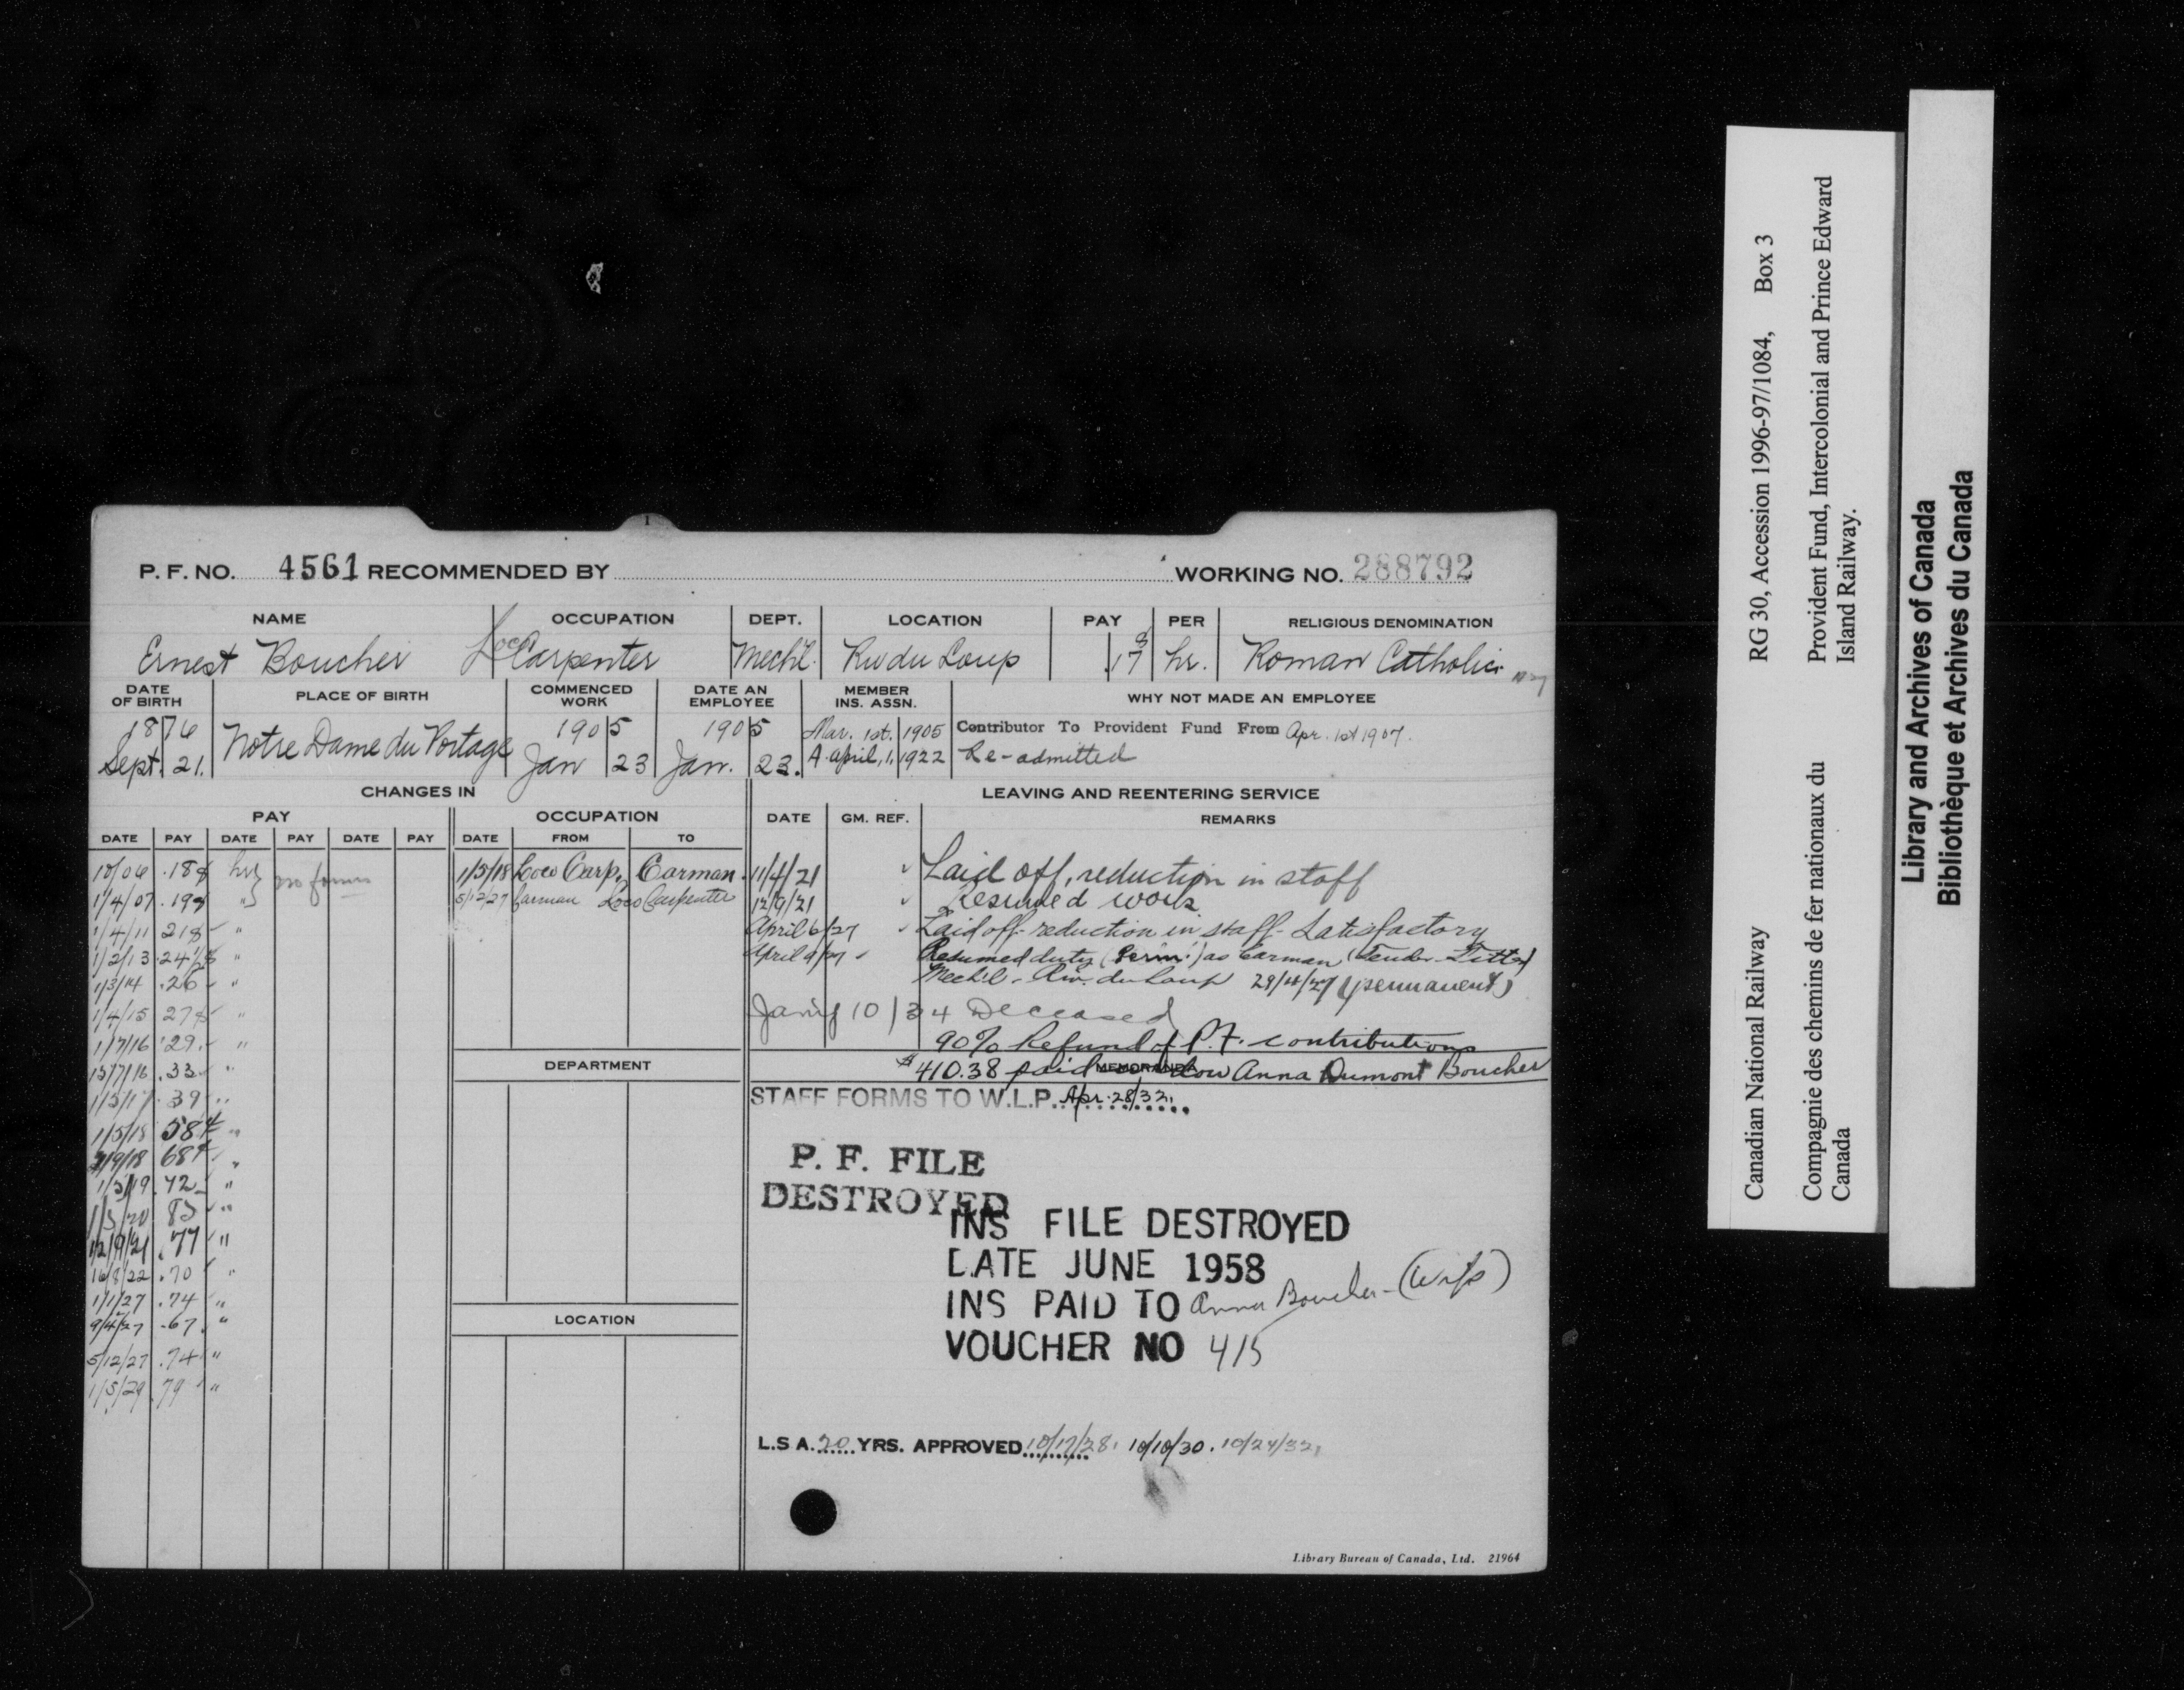 P. F. NO. 4561 RECOMMENDED BY WORKING NO. 288792
NAME OCCUPATION DEPT. LOCATION PAY PER RELIGIOUS DENOMINATION
Ernest Boucher Loco Carpenter Mech'l. Riv du Loup .17 hr. Roman Catholic
DATE OF BIRTH PLACE OF BIRTH COMMENCED WORK DATE AN EMPLOYEE MEMBER INS. ASSN. WHY NOT MADE AN EMPLOYEE
1876 Notre Dame du Portage 1905 1905 Mar. 1st. 1905 Contributor To Provident Fund From Apr. 1st 1907.
Sept. 21. Jan 23 Jan. 23. A April, 1, 1922 Re-admitted
CHANGES IN LEAVING AND REENTERING SERVICE
PAY OCCUPATION DATE GM. REF. REMARKS
DATE PAY DATE PAY DATE PAY DATE FROM TO
.18¢ hr no forms 1/5/18 Loco Carp. Carman. 11/4/21 Laid off, reduction in staff
1/4/07 .19¢ " 5/12/27 Carman Loco Carpenter 12/9/21 Resumed work
1/4/11 21¢ " April 6/27 Laid off reduction in staff - Satisfactory
1/2/13 .24½¢ " April 9/27 Resumed duty (Perm.) as Carman (Tender Fitter)
1/3/14 .26 " Mech'l - Riv. du Loup 29/4/27 (permanent)
1/4/15 27¢ "
Jan'y 10/34 Deceased
1/7/16 .29 "
90% Refund of P.F. contributions
15/7/16 .33 "
DEPARTMENT
MEMORANDA
$410.38 paid widow Anna Dumont Boucher
1/5/17 .39 "
STAFF FORMS TO W.L.P. Apr. 28/32.
1/5/18 58¢ "
/9/18 68¢ "
P. F. FILE
DESTROYED
1/5/19 .72 "
1/5/20 85 "
INS FILE DESTROYED
12/9/21 .77 "
DATE JUNE 1958
16/8/22 .70 "
1/1/27 .74 "
INS PAID TO Anna Boucher - (Wife)
9/4/27 .67 "
LOCATION
VOUCHER NO 415
5/12/27 .74 "
1/5/29 .79 "
L.S A. 20 YRS. APPROVED 10/17/28, 10/10/30. 10/24/32,
Library Bureau of Canada, Ltd. 21964
Canadian National Railway RG 30, Accession 1996-97/1084, Box 3
Compagnie des chemins de fer nationaux du
Canada
Provident Fund, Intercolonial and Prince Edward
Island Railway.
Library and Archives of Canada
Bibliothèque et Archives du Canada